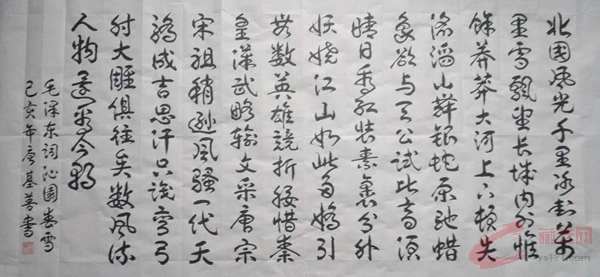 北国风光千里冰封万
里雪飘望长城内外惟
馀莽莽大河上下顿失
滔滔山舞银蛇原驰蜡
象欲与天公试比高须
晴日看红装素裹分外
妖娆江山如此多娇引
无数英雄競折腰惜秦
皇漢武略输文采唐宗
宋祖稍逊风骚一代天
骄成吉思汗只识弯弓
射大雕俱往矣数风流
人物還看今朝
毛泽东词沁园春雪
己亥年唐基善书